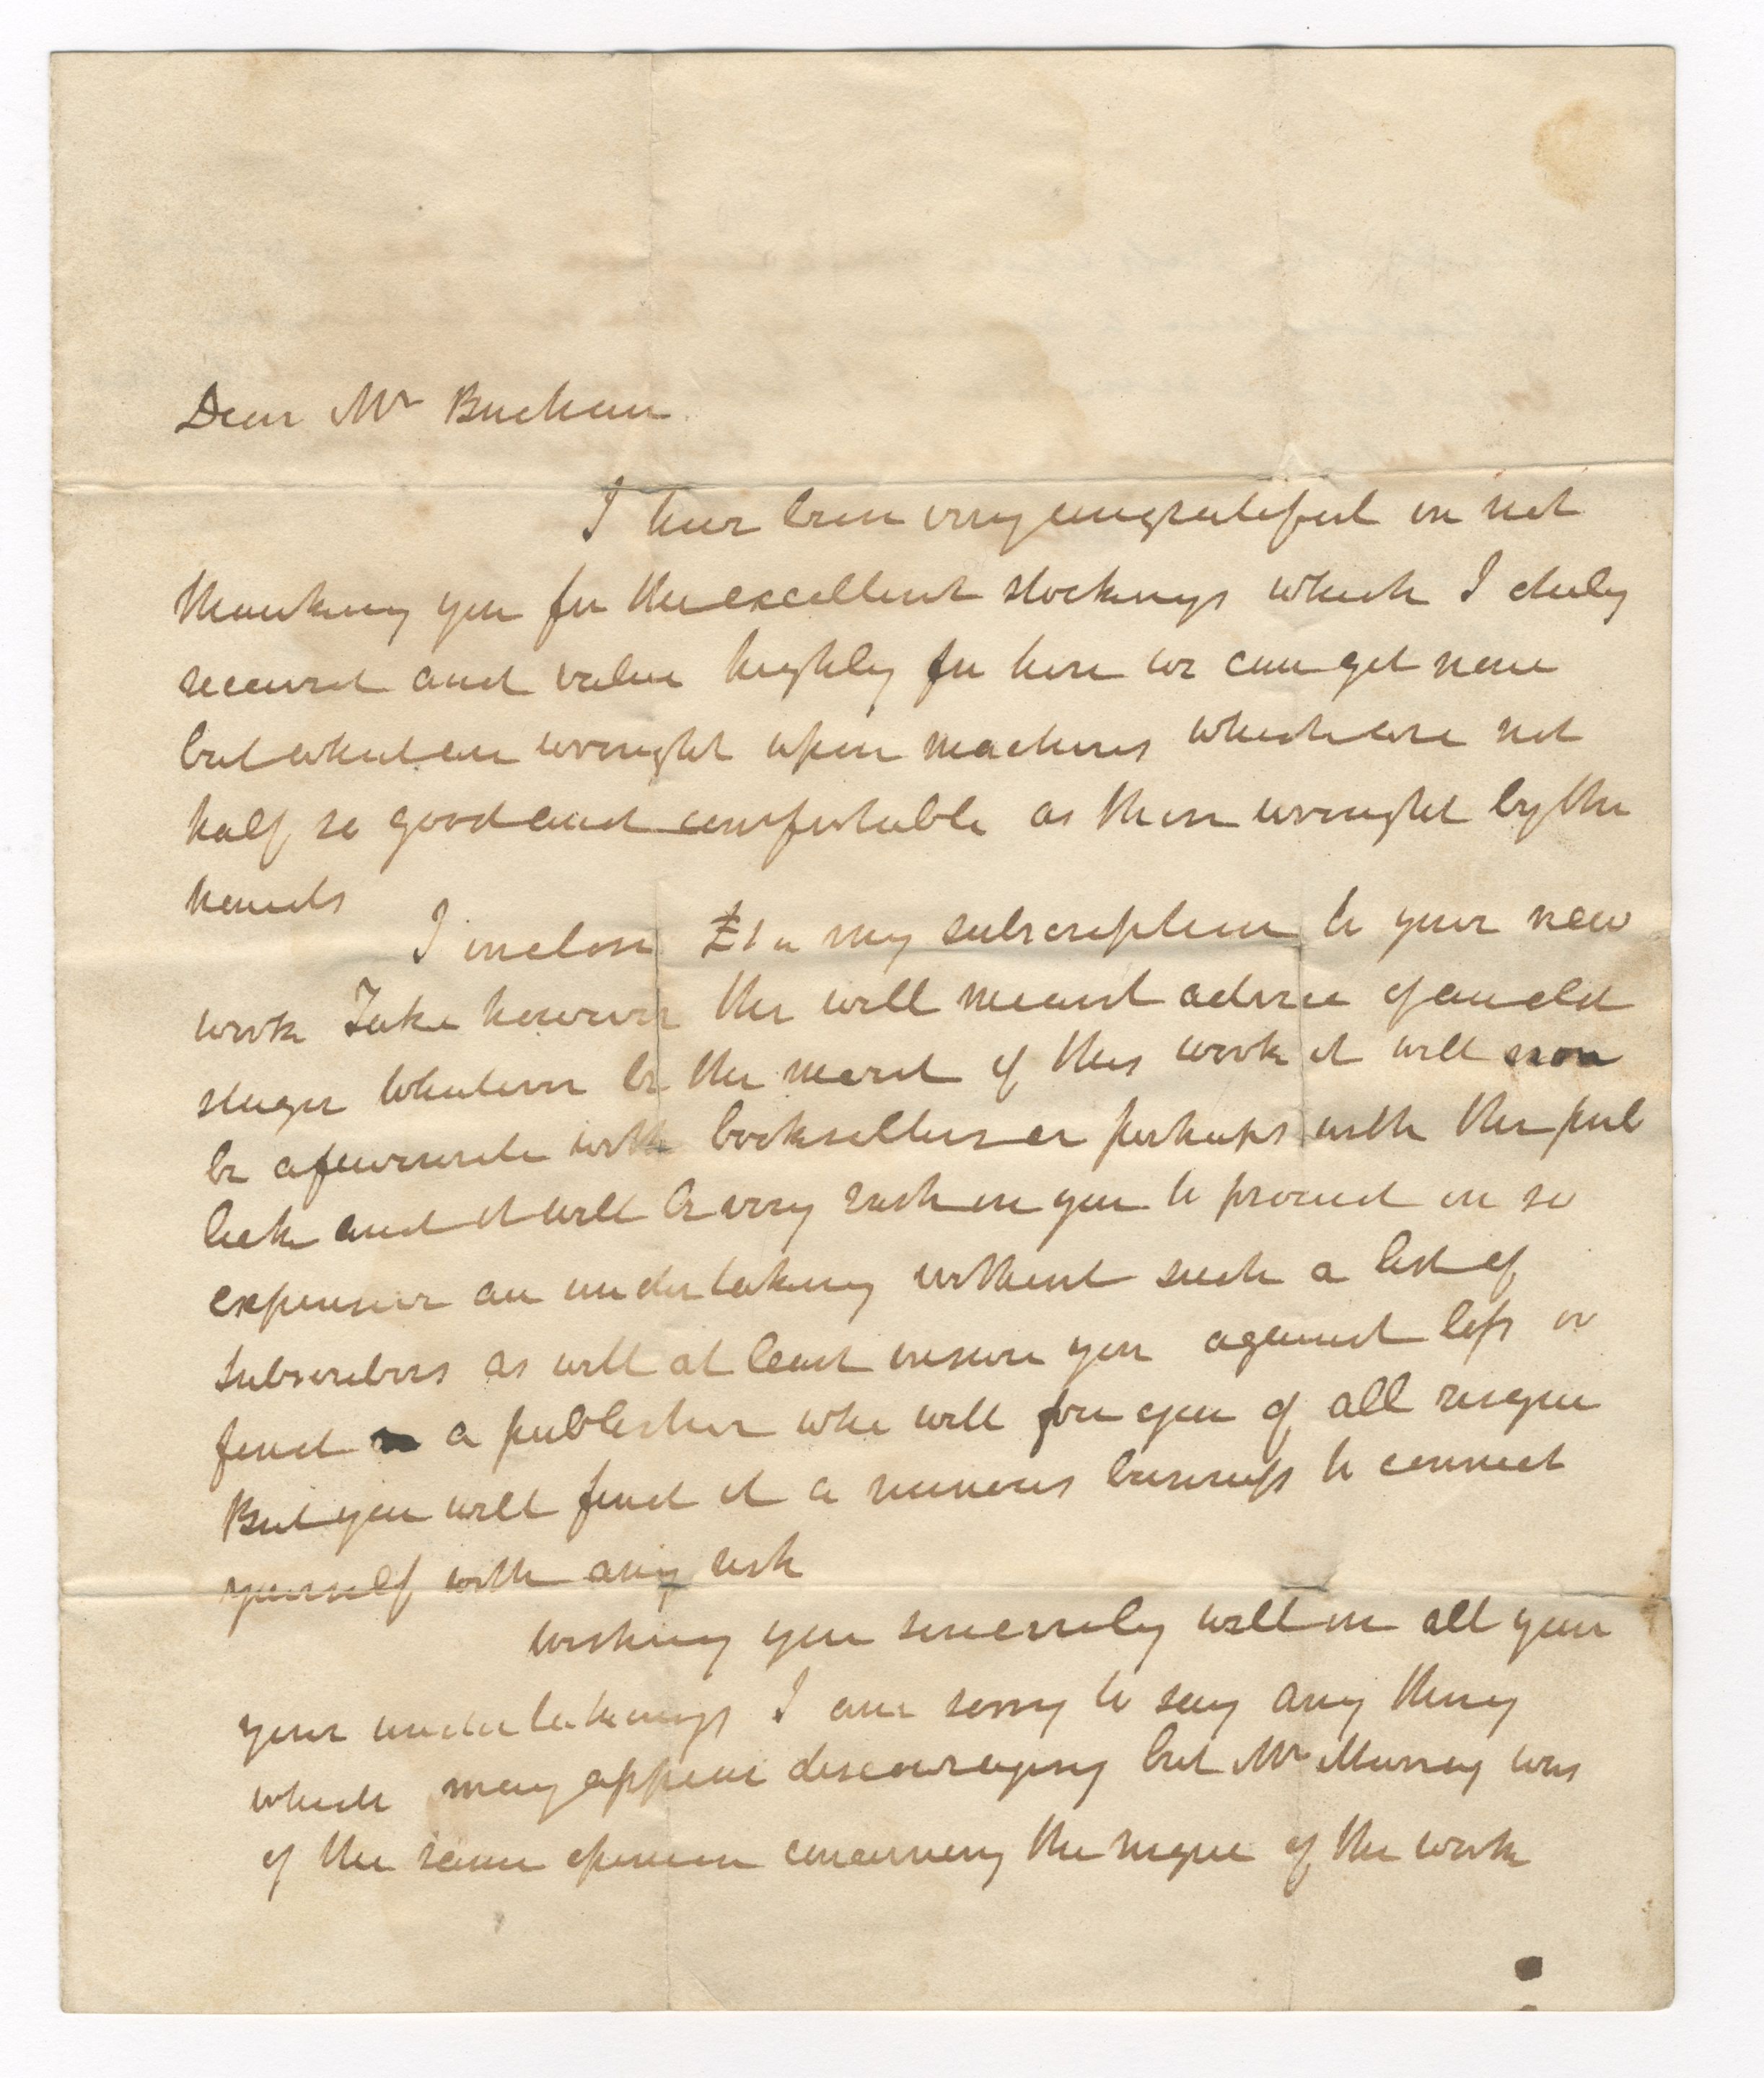 Dear Mr Buchan
I have been very ungrateful in not
thanking you for the excellent stockings which I duly
received and value highly for here we can get none
but what are wrought upon machines which are not
half so good and comfortable as those wrought by the
hands
I inclose £1 " my subscription to your new
work Take however the well meant advice of an old
stager Whatever be the merit of this work it will non
be a favourite with booksellers or perhaps with the pub
lick and it will be very rash in you to proceed in so
expensive an undertaking without such a list of
subscribers as will at least insure you against loss or
find a publisher who will free you of all risque
But you will find it a ruinous business to connect
yourself with any risk
Wishing you sincerely well in all your
your undertakings I am sorry to say any thing
which may appear discouraging but Mr Murray was
of the same opinion concerning the risque of the work